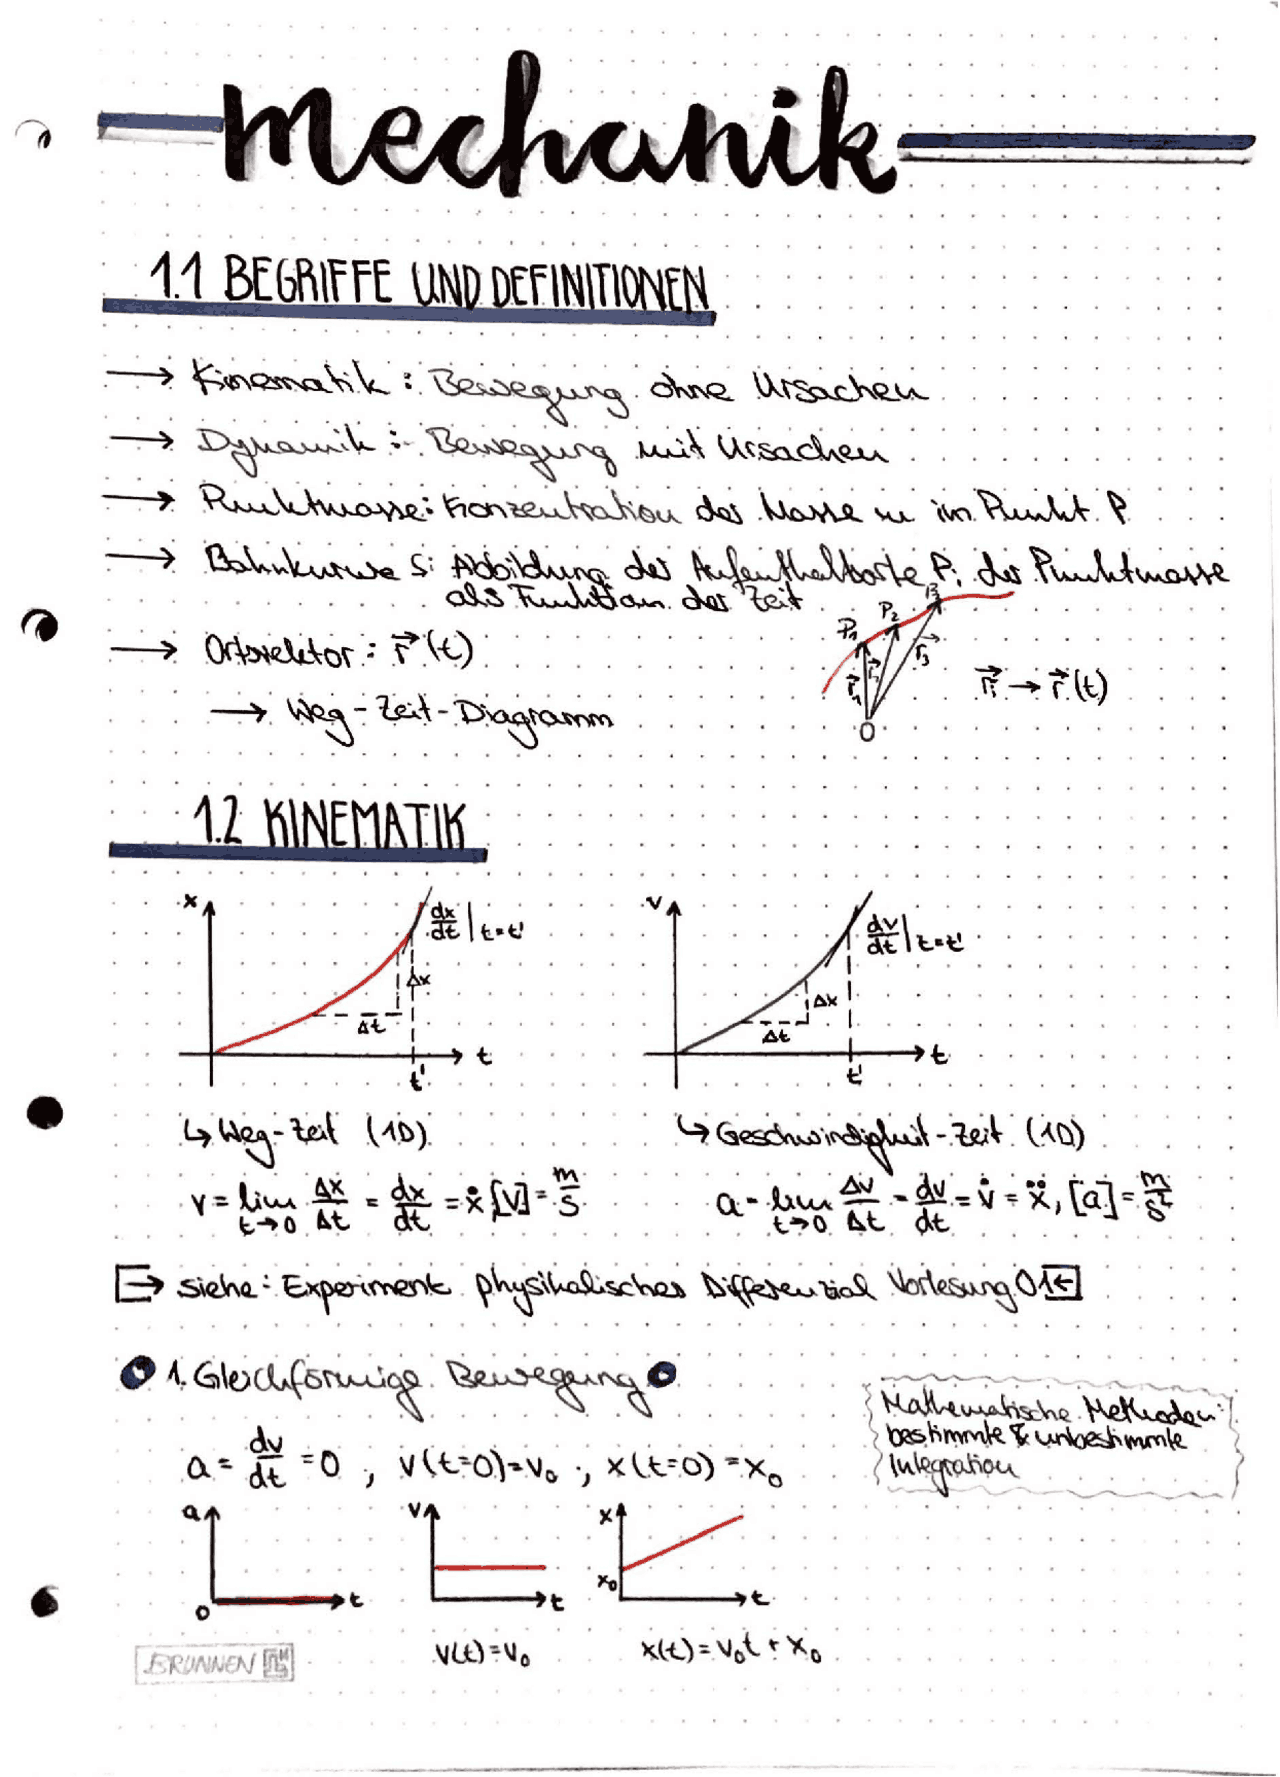 Mechanik
1.1 BEGRIFFE UND DEFINITIONEN
→ Kinematik: Bewegung ohne Ursachen
→ Dynamik: Bewegung mit Ursachen
→ Punktmasse: Konzentration der Masse m im Punkt P
→ Bahnkurve S: Abbildung der Aufenthaltsorte Pi der Punktmasse
als Funktion der Zeit
P₁ P₂ P₃
→ Ortsvektor: r⃗(t)
r⃗₁ r⃗₂ r⃗₃
r⃗i → r⃗(t)
→ Weg-Zeit-Diagramm
O
1.2 KINEMATIK
x dx/dt | t=t' Δx Δt t' t
v dv/dt | t=t' Δx Δt t' t
↳ Weg-Zeit (1D)
↳ Geschwindigkeit-Zeit (1D)
v = lim t→0 Δx/Δt = dx/dt = ẋ [v] = m/s
a = lim t→0 Δv/Δt = dv/dt = v̇ = ẍ, [a] = m/s²
→ siehe: Experiment physikalisches Differenzial Vorlesung 01 ←
1. Gleichförmige Bewegung
Mathematische Methoden:
bestimmte & unbestimmte
Integration
a = dv/dt = 0 , v(t=0)=v₀ ; x(t=0)=x₀
a 0 t
v t
x x₀ t
v(t)=v₀
x(t)=v₀t + x₀
BRUNNEN